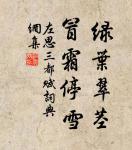 綠葉翠莖
冒霜停雪
左思三都賦詞典
網集